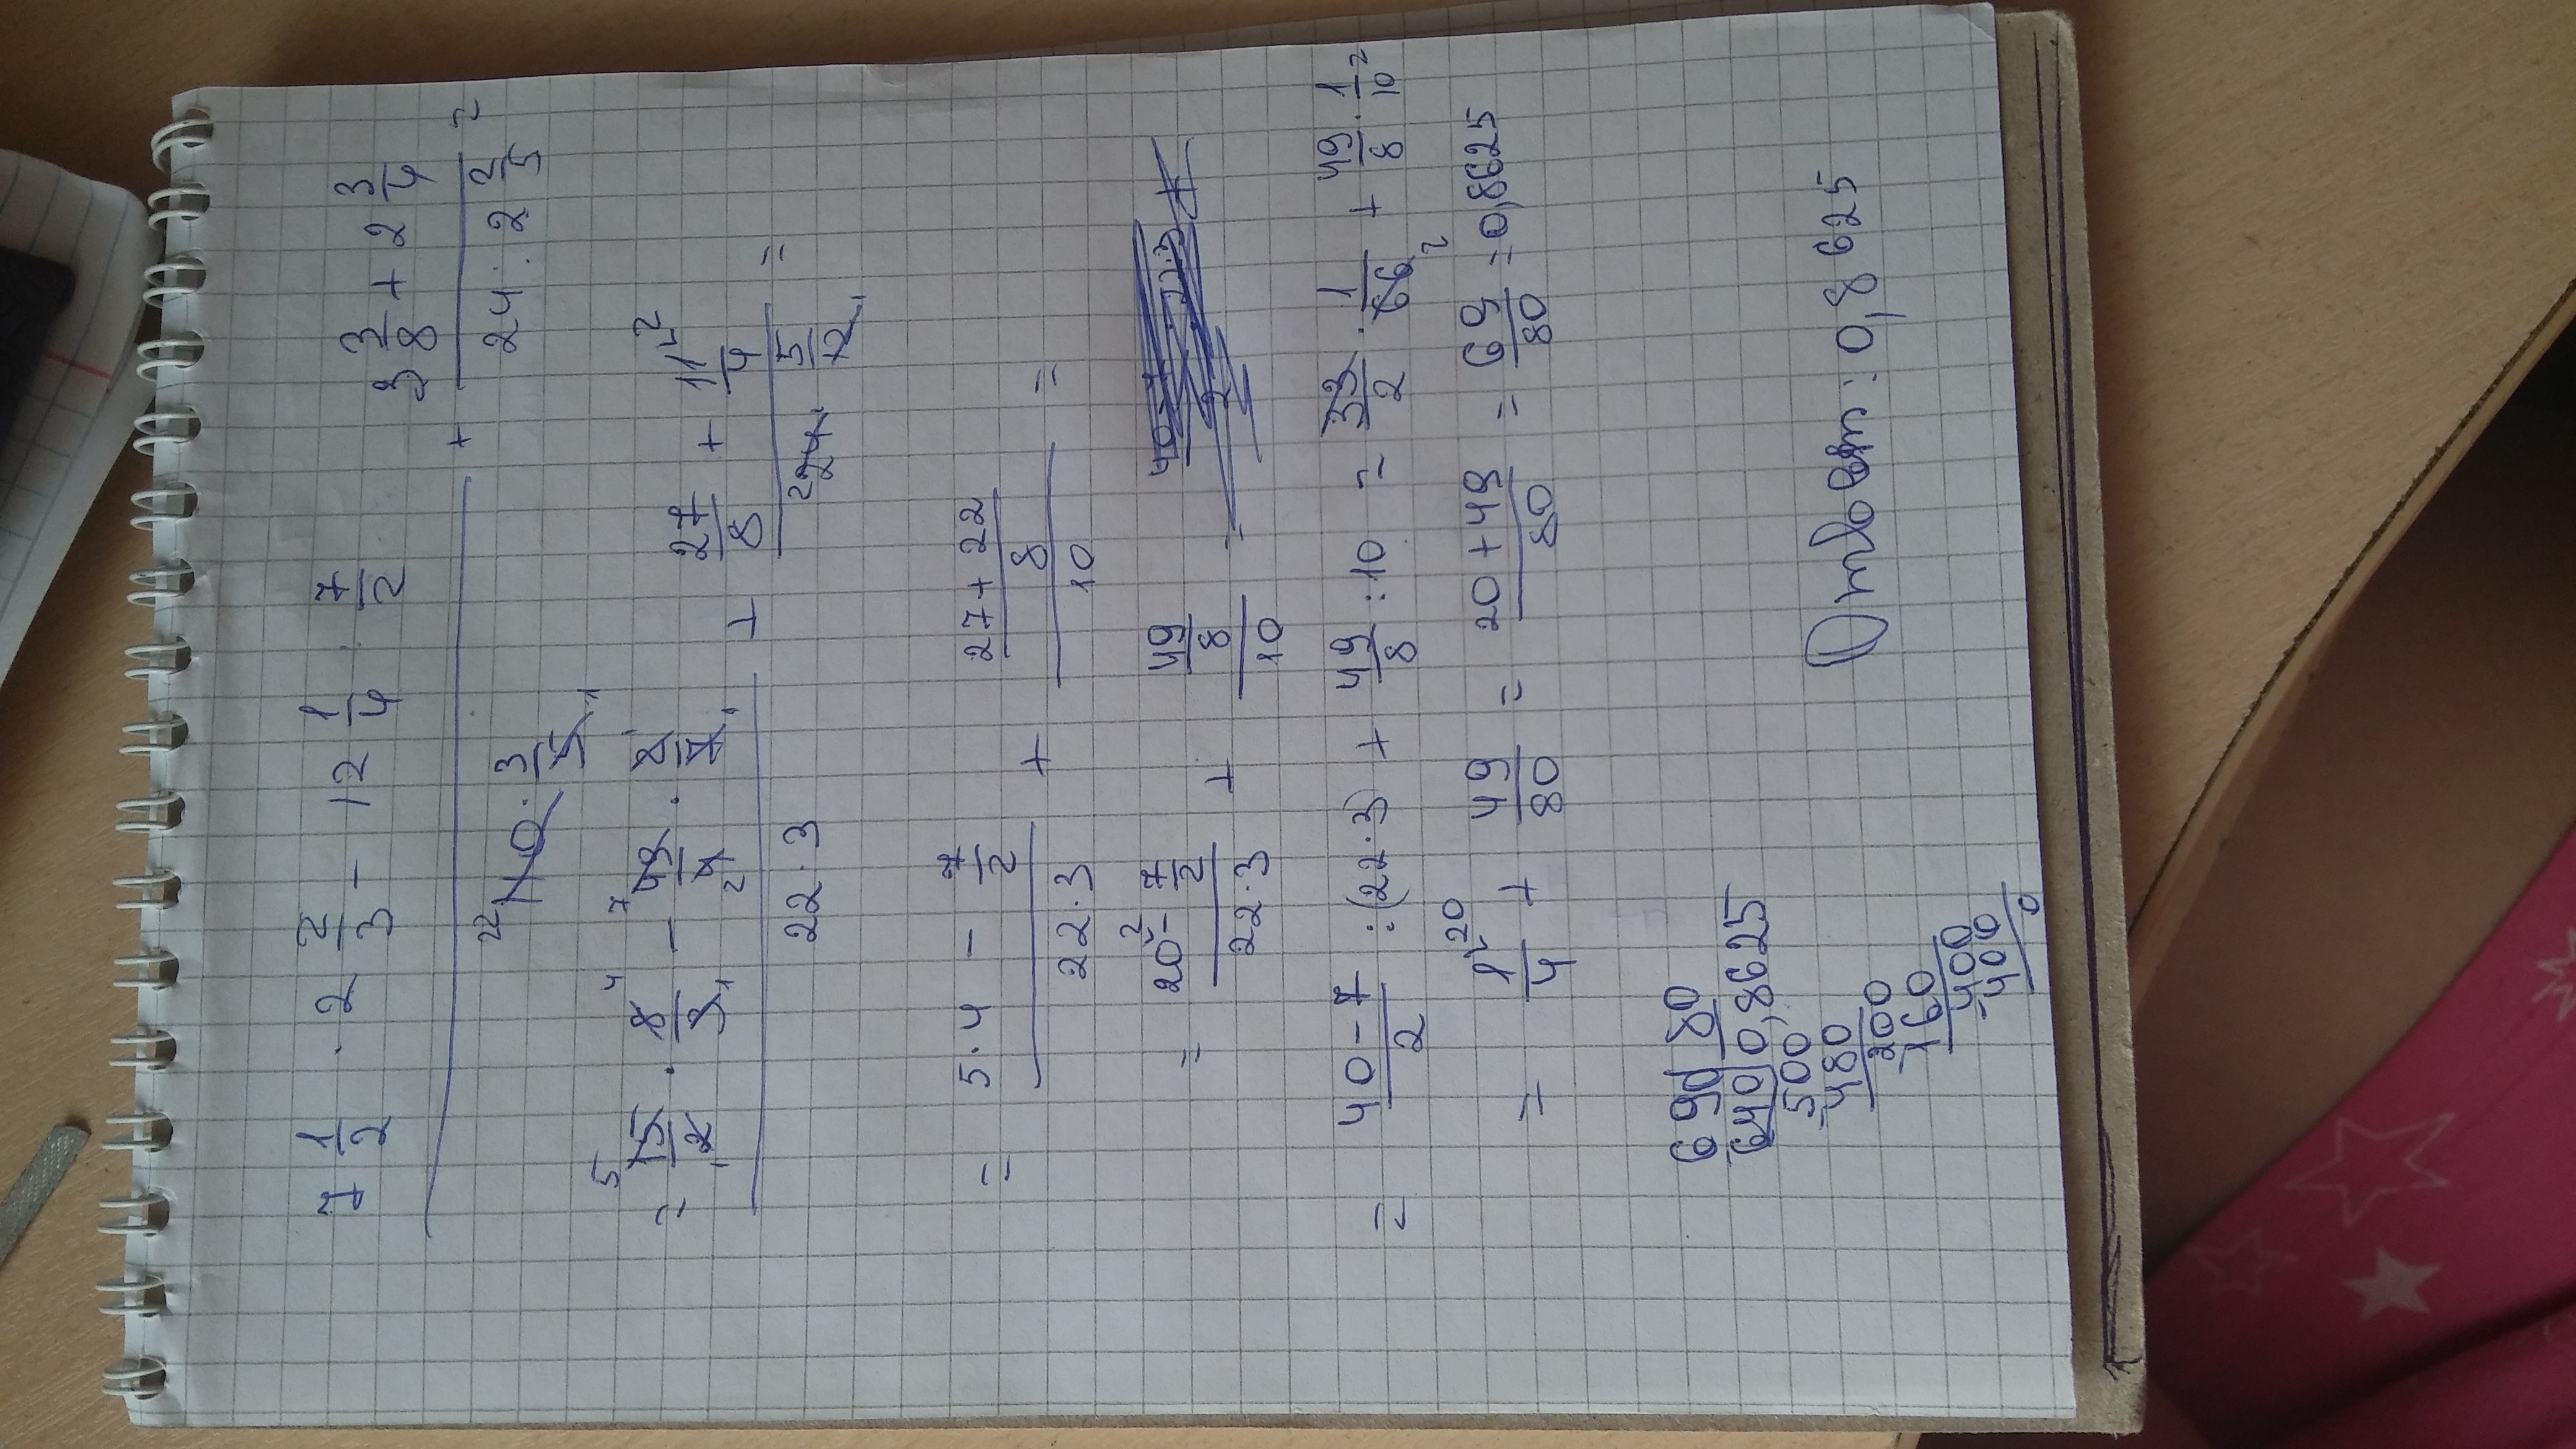 7 1/2 · 2 2/3 - 12 1/4 : 7/2 + 3 3/8 + 2 3/4
110 · 3/5 24 : 2 2/5 =
= 15/2 · 8/3 - 49/4 · 2/7 + 27/8 + 11/4
22 · 3 24 · 5/12 =
= 5 · 4 - 7/2 + 27 + 22/8 =
22 · 3 10
= 20 - 7/2 + 49/8 =
22 · 3 10
= 40 - 7/2 : (22 · 3) + 49/8 : 10 = 33/2 · 1/66 + 49/8 · 1/10 =
= 1/4 + 49/80 = 20 + 49/80 = 69/80 = 0,8625
690 80
640 0,8625
-500
480
200
-160
400
-400
0
Ответ: 0,8625